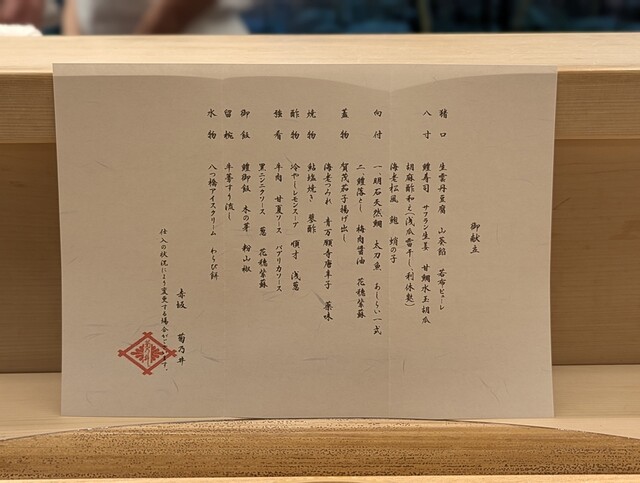 御献立
猪口 生雲丹豆腐 山葵餡 若布ピューレ
八寸 鱧寿司 サフラン生姜 甘鯛水玉胡瓜
胡麻酢和え(浅瓜雷干し、利休麩)
海老松風 鮑 蛸の子
向付 一、明石天然鯛 太刀魚 あしらい一式
二、鱧落とし 梅肉醤油 花穂紫蘇
蓋物 賀茂茄子揚げ出し
海老つみれ 青万願寺唐辛子 薬味
焼物 鮎塩焼き 蓼酢
酢物 冷やしレモンスープ 順才 浅葱
強肴 牛肉 甘夏ソース パプリカソース
黒ニンニクソース 葱 花穂紫蘇
御飯 鱧御飯 木の芽 粉山椒
留椀 牛蒡すり流し
水物 八つ橋アイスクリーム わらび餅
赤坂 菊乃井
仕入の状況により変更する場合がございます。